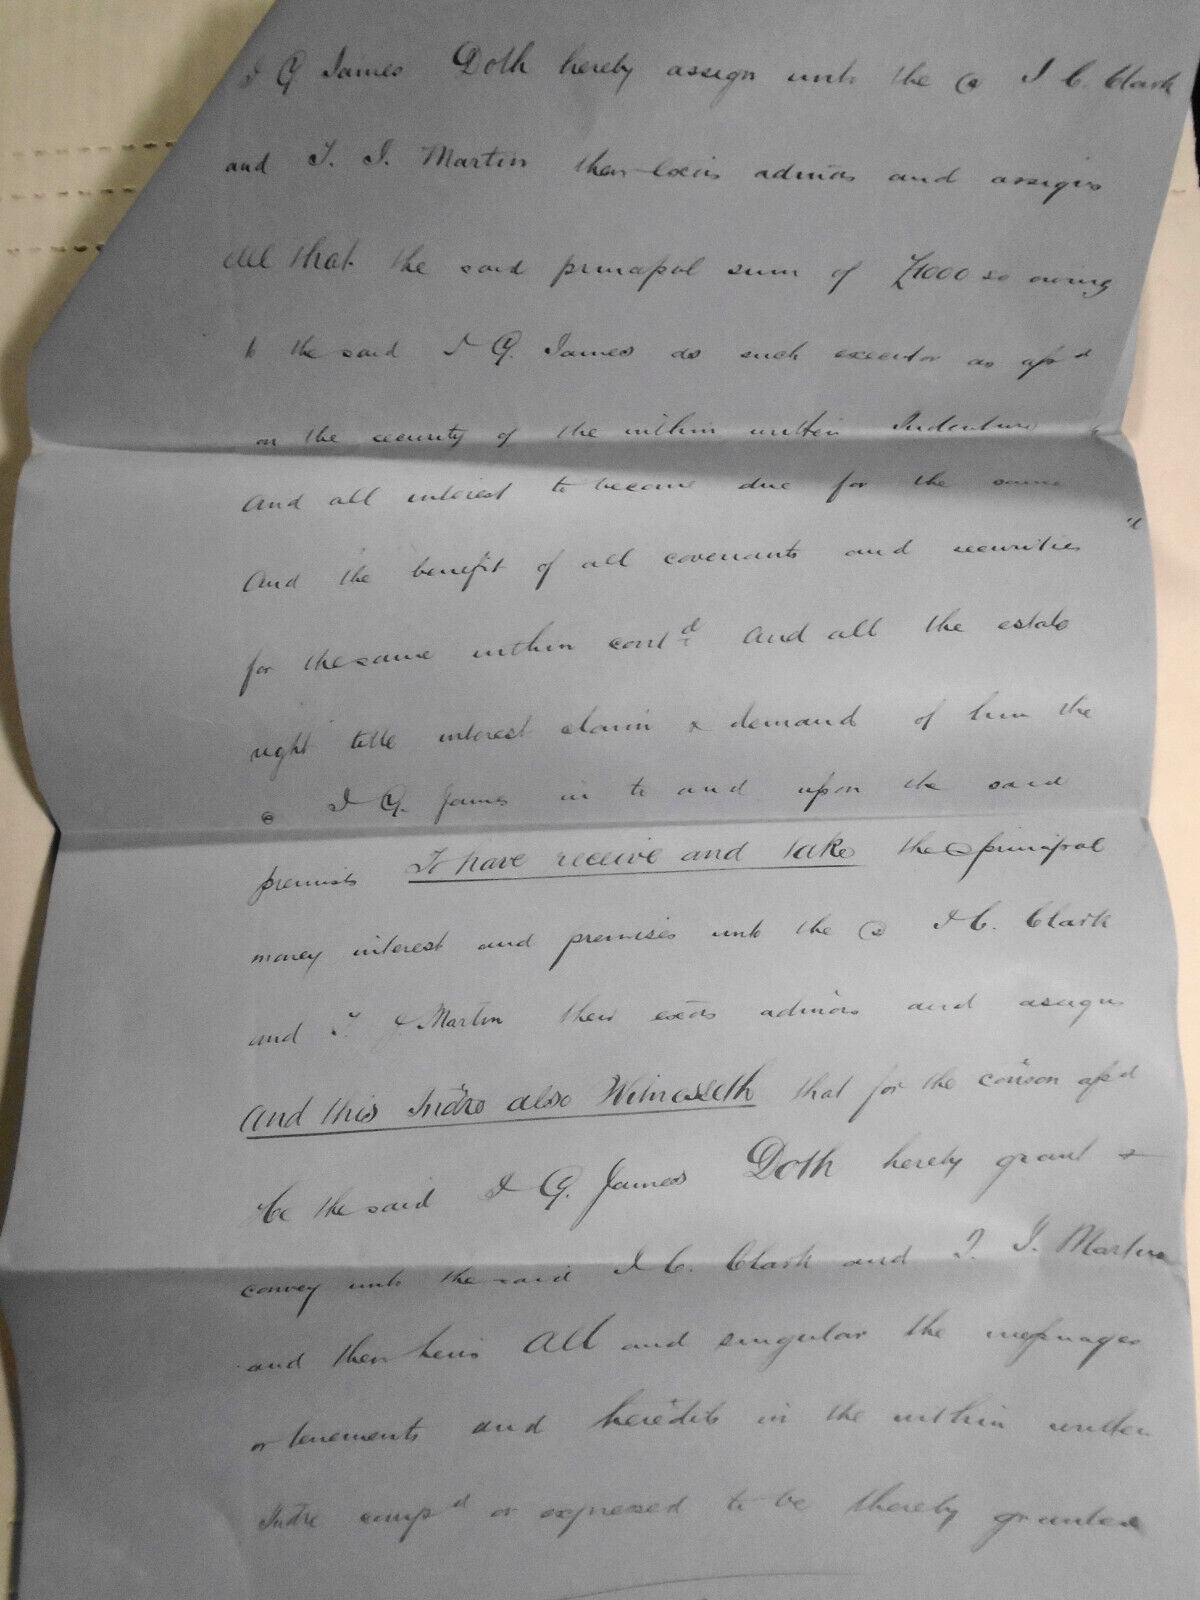 J G James Doth hereby assign unto the s J C. Clark
and T. J. Martin their exors admors and assigns
All that the said principal sum of £1000 so owing
to the said J G. James as such executor as afsd
on the security of the within written Indenture
And all interest to become due for the same
And the benefit of all covenants and securities
for the same within contd And all the estate
right title interest claim & demand of him the
s J G. James in to and upon the said
premises To have receive and take the s principal
money interest and premises unto the s J C. Clark
and T. J Martin their exors admors and assigns
And this Indre also Witnesseth that for the conson afsd
He the said J G. James Doth hereby grant &
convey unto the said J C. Clark and T. J. Martin
and their heirs All and singular the messuages
or tenements and heredits in the within written
Indre compd or expressed to be thereby granted